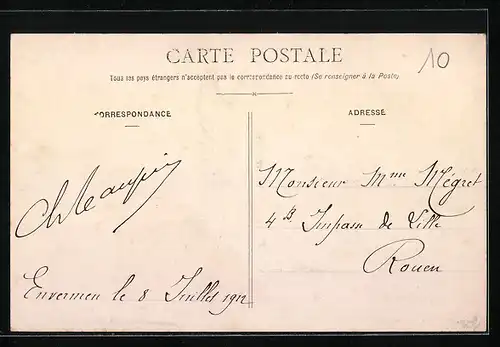 CARTE POSTALE
10
Tous les pays étrangers n'acceptent pas la correspondance au recto (Se renseigner à la Poste)
CORRESPONDANCE
ADRESSE
Monsieur Mme Mégret
4 B Impasse de Ville
Rouen
Envermeu le 8 Juillet 1912